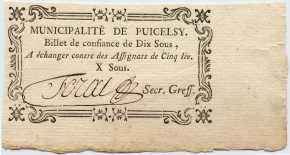 MUNICIPALITÉ DE PUICELSY.
Billet de confiance de Dix Sous,
A échanger contre des Assignats de Cinq liv.
X Sous.
Secr. Greff.